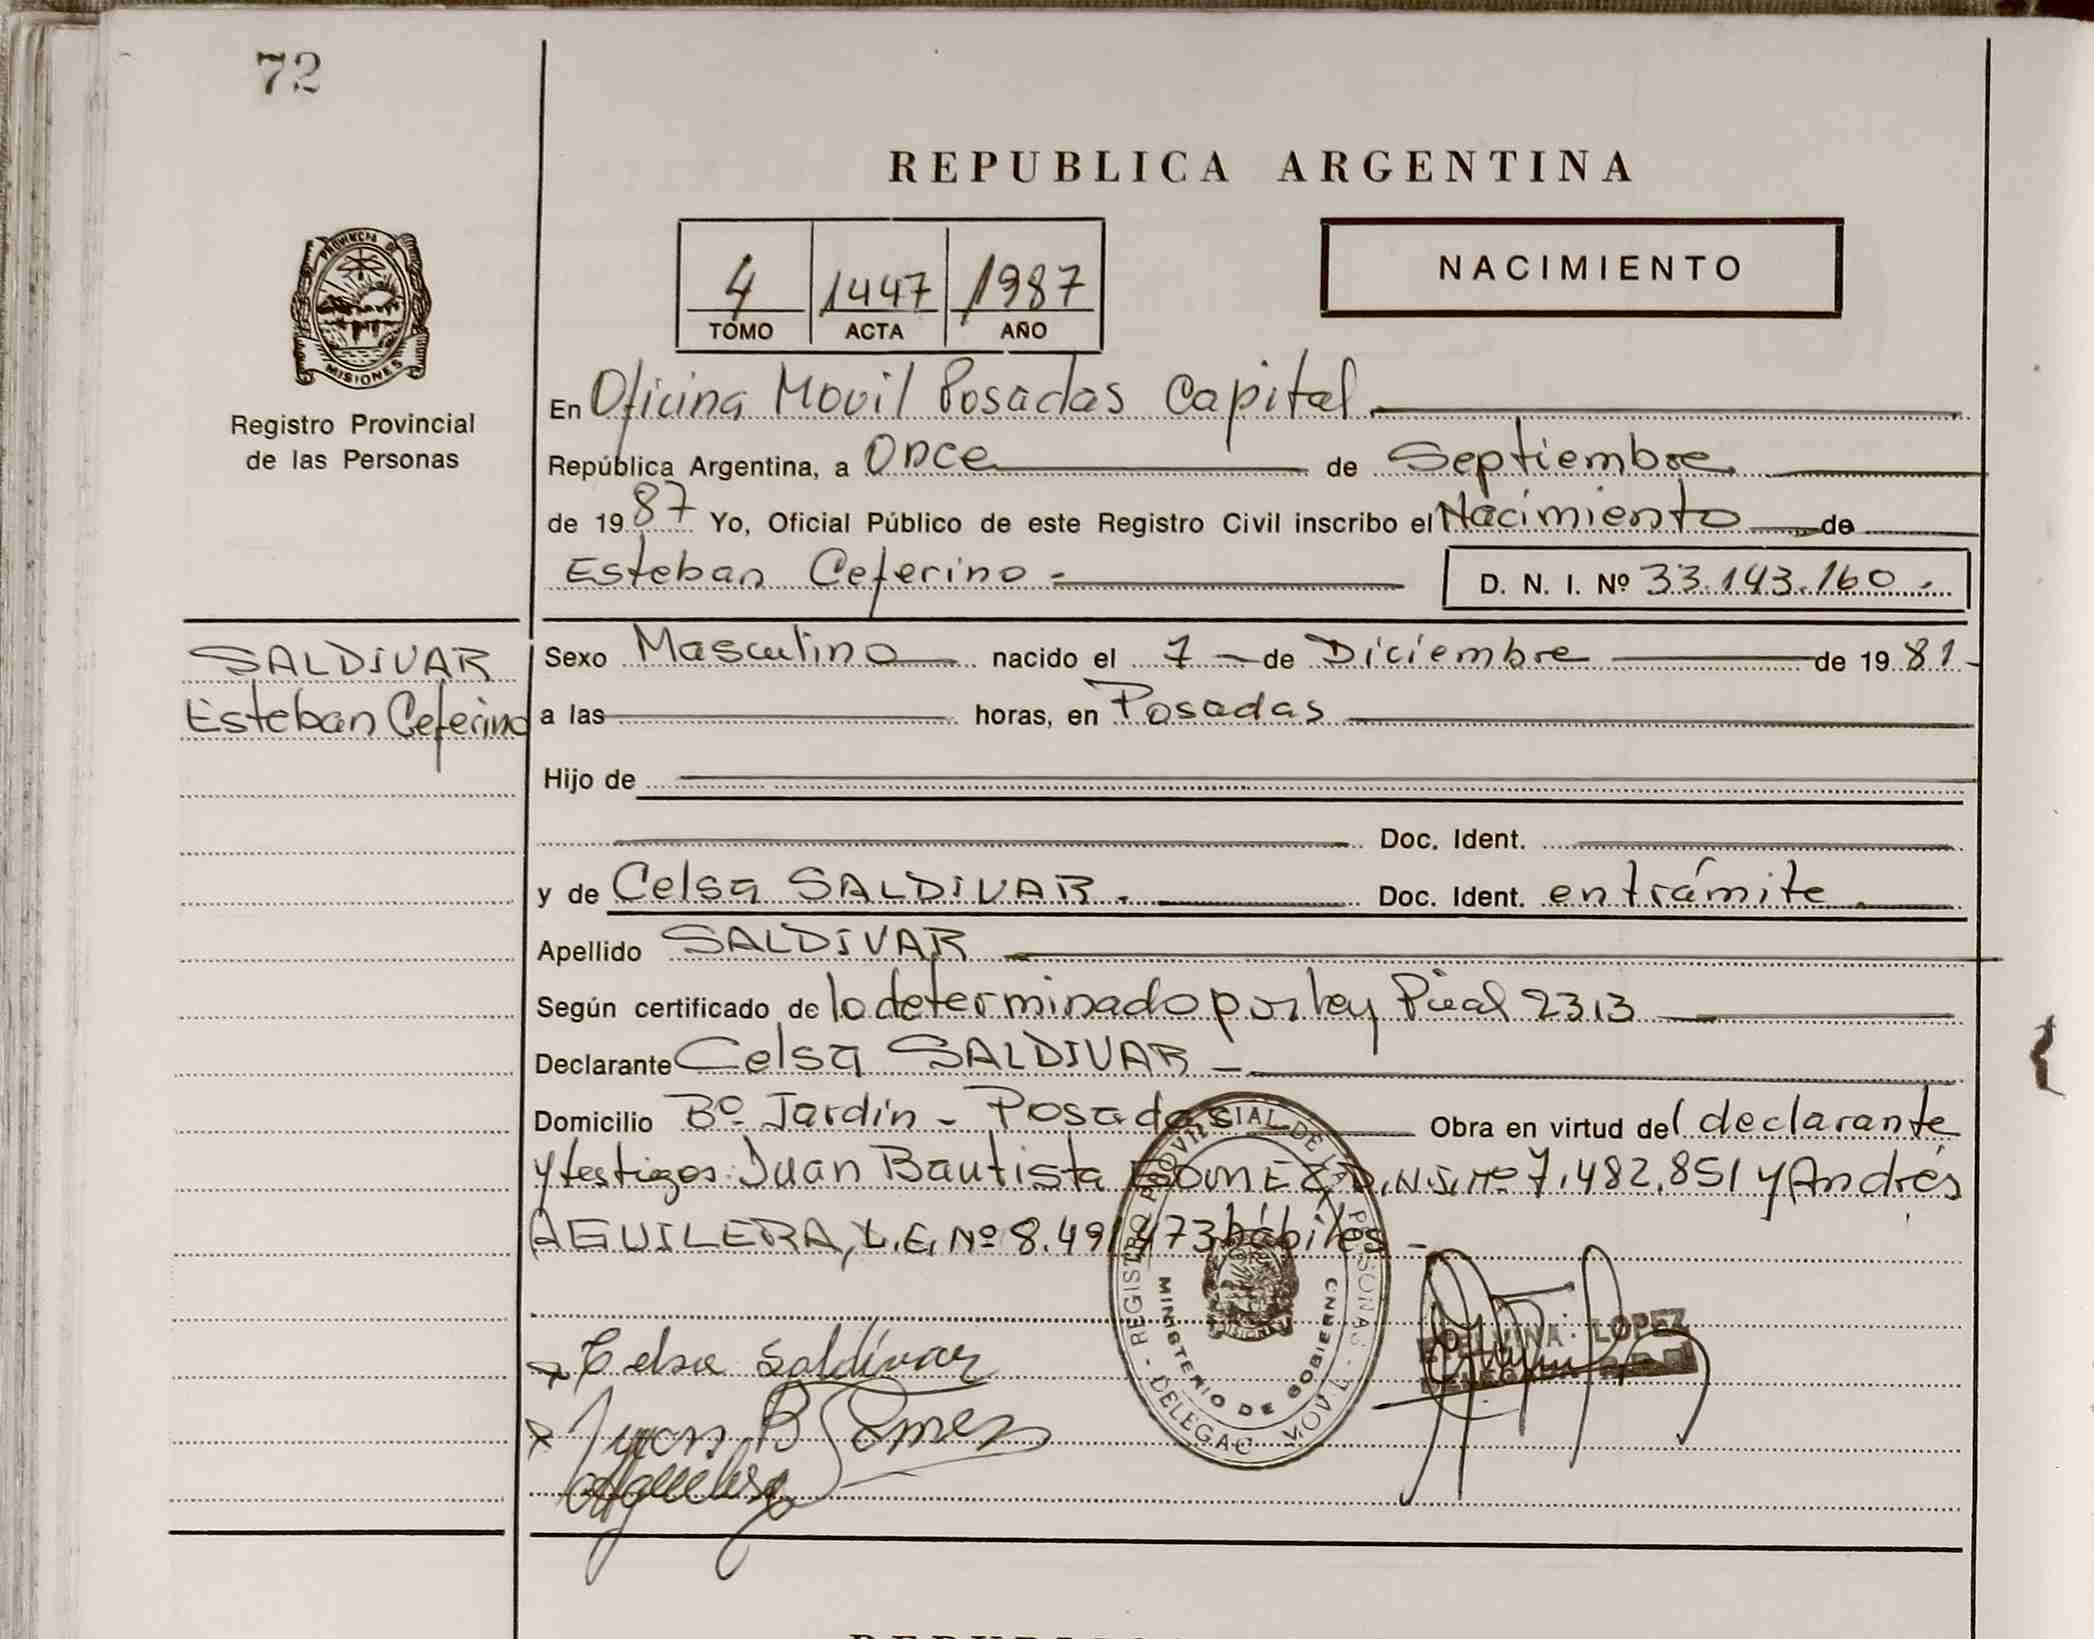 72
REPUBLICA ARGENTINA
PROVINCIA DE
MISIONES
Registro Provincial
de las Personas
4 1447 1987
TOMO ACTA AÑO
NACIMIENTO
En Oficina Movil Posadas Capital
República Argentina, a Once de Septiembre
de 1987 Yo, Oficial Público de este Registro Civil inscribo el Nacimiento de
Esteban Ceferino.- D. N. I. Nº 33.143.160.-
SALDIVAR
Esteban Ceferino
Sexo Masculino nacido el 7 de Diciembre de 1981
a las horas, en Posadas
Hijo de
Doc. Ident.
y de Celsa SALDIVAR. Doc. Ident. en trámite.
Apellido SALDIVAR
Según certificado de lo determinado por ley Pcial 2313
Declarante Celsa SALDIVAR
Domicilio Bº Jardín - Posadas Obra en virtud del declarante
y testigos: Juan Bautista GOMEZ D.N.I. Nº 7.482.851 y Andrés
AGUILERA, L.E. Nº 8.491.473 hábiles -
REGISTRO PROVINCIAL DE LAS PERSONAS - DELEGAC. MOVIL -
MINISTERIO DE GOBIERNO
LOPEZ
DELEGADA
x Celsa Saldivar
x Juan B Gomez
Aguilera